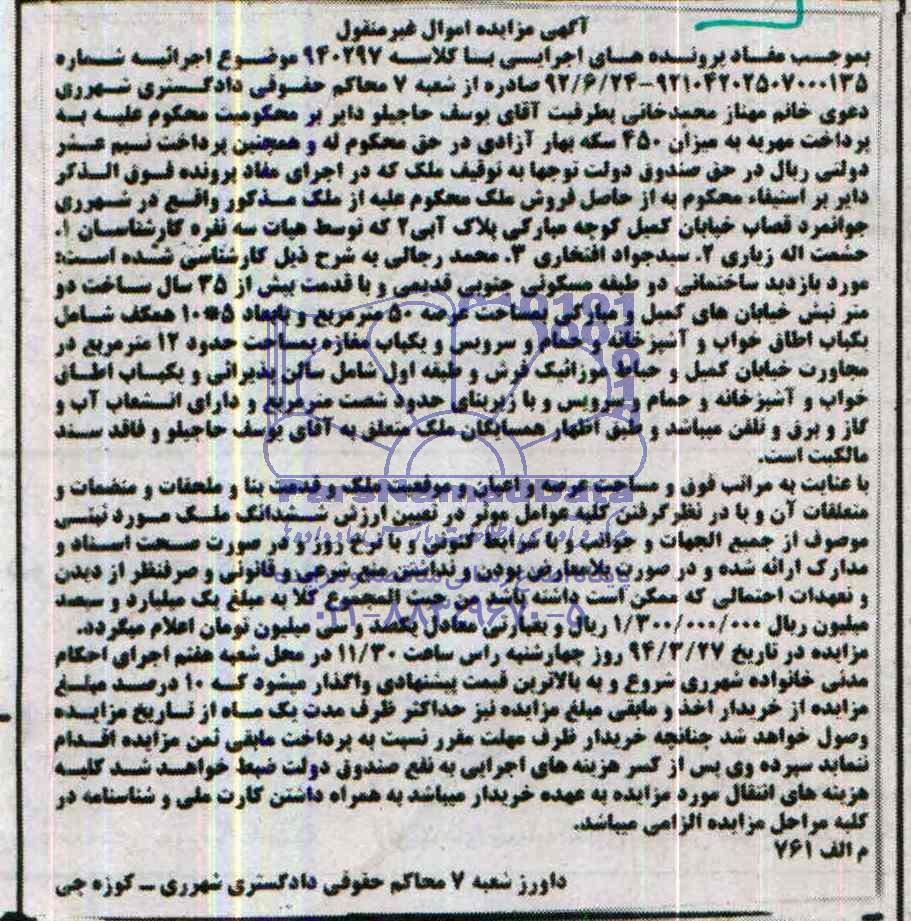 آگهی مزایده اموال غیرمنقول
بموجب مفاد پرونده های اجرایی بنا کلاسه ۹۴۰۲۹۷ موضوع اجرائیه شماره
۹۲۱۰۴۲۰۲۵۰۷۰۰۰۱۳۵-۹۲/۶/۲۴ صادره از شعبه ۷ محاکم حقوقی دادگستری شهرری
دعوی خانم مهناز محمدخانی بطرفیت آقای یوسف حاجیلو دایر بر محکومیت محکوم علیه به
پرداخت مهریه به میزان ۴۵۰ سکه بهار آزادی در حق محکوم له و همچنین پرداخت نیم عشر
دولتی ریال در حق صندوق دولت توجها به توقیف ملک که در اجرای مفاد پرونده فوق الذکر
دایر بر استیفاء محکوم به از حاصل فروش ملک محکوم علیه از ملک مذکور واقع در شهرری
جوانمرد قصاب خیابان کمیل کوچه مبارکی پلاک آبی۲ که توسط هیات سه نفره کارشناسان ۱.
حشمت اله زیاری ۲. سیدجواد افتخاری ۳. محمد رجالی به شرح ذیل کارشناسی شده است:
مورد بازدید ساختمانی دو طبقه مسکونی جنوبی قدیمی و با قدمت بیش از ۳۵ سال ساخت دو
متر نبش خیابان های کمیل و مبارکی بمساحت عرصه ۵۰ مترمربع و بابعاد ۵*۱۰ همکف شامل
یکباب اطاق خواب و آشپزخانه و حمام و سرویس و یکباب مغازه بمساحت حدود ۱۲ مترمربع در
مجاورت خیابان کمیل و حیاط موزائیک فرش و طبقه اول شامل سالن پذیرائی و یکباب اطاق
خواب و آشپزخانه و حمام و سرویس و با زیربنای حدود شصت مترمربع و دارای انشعاب آب و
گاز و برق و تلفن میباشد و طبق اظهار همسایگان ملک متعلق به آقای یوسف حاجیلو و فاقد سند
مالکیت است.
با عنایت به مراتب فوق و مساحت عرصه و اعیان و موقعیت ملک و قدمت بنا و ملحقات و منضمات و
متعلقات آن و با در نظر گرفتن کلیه عوامل موثر در تعیین ارزش ششدانگ ملک مورد نیتسی
موصوف از جمیع الجهات و جوانب و با شرایط کنونی و با نرخ روز و در صورت صحت اسناد و
مدارک ارائه شده و در صورت بلامعارض بودن و نداشتن منع شرعی و قانونی و صرفنظر از دیدن
و تعهدات احتمالی که ممکن است داشته باشد من حیث المجموع کلا به مبلغ یک میلیارد و سیصد
میلیون ریال ۱/۳۰۰/۰۰۰/۰۰۰ ریال و بعبارتی معادل یکصد و سی میلیون تومان اعلام میگردد.
مزایده در تاریخ ۹۴/۳/۲۷ روز چهارشنبه راس ساعت ۱۱/۳۰ در محل شعبه هفتم اجرای احکام
مدنی خانواده شهرری شروع و به بالاترین قیمت پیشنهادی واگذار میشود که ۱۰ درصد مبلغ
مزایده از خریدار اخذ و مابقی مبلغ مزایده نیز حداکثر ظرف مدت یک ماه از تاریخ مزایده
وصول خواهد شد چنانچه خریدار ظرف مهلت مقرر نسبت به پرداخت مابقی ثمن مزایده اقدام
ننماید سپرده وی پس از کسر هزینه های اجرایی به نفع صندوق دولت ضبط خواهد شد کلیه
هزینه های انتقال مورد مزایده به عهده خریدار میباشد به همراه داشتن کارت ملی و شناسنامه در
کلیه مراحل مزایده الزامی میباشد.
م الف ۷۶۱
داورز شعبه ۷ محاکم حقوقی دادگستری شهرری - کوزه چی
ParsNamadData
۰۲۱-۸۸۳۴۹۶۷۰-۵